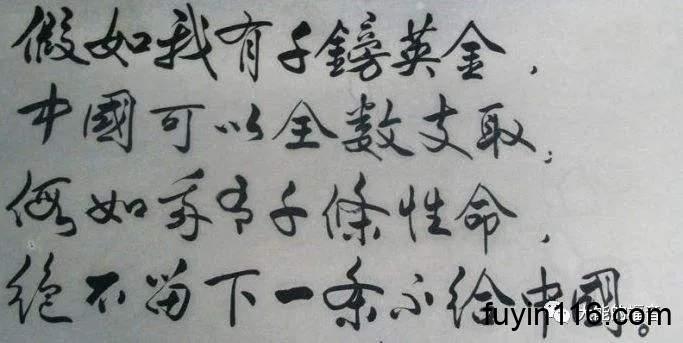 假如我有千鎊英金，
中國可以全数支取；
假如我有千條性命，
絶不留下一条不给中國。
fuyin116.com